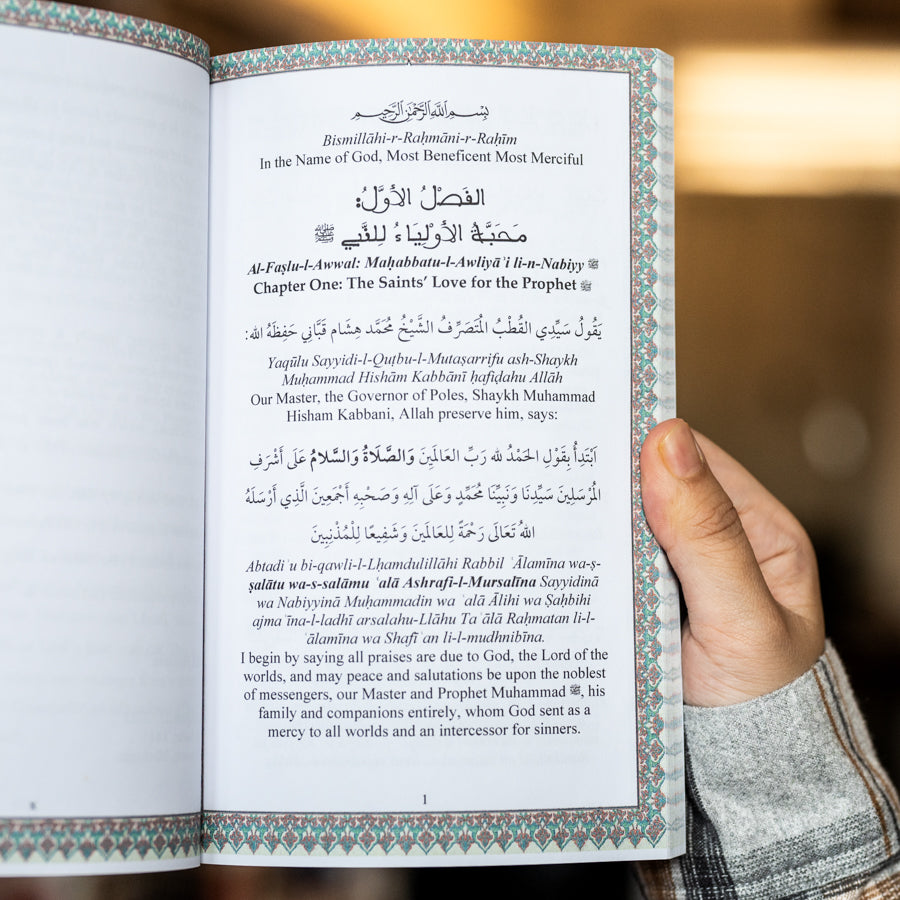 بِسْمِ اللَّهِ الرَّحْمَٰنِ الرَّحِيمِ
Bismillāhi-r-Raḥmāni-r-Raḥīm
In the Name of God, Most Beneficent Most Merciful
الفَصْلُ الأَوَّلُ:
مَحَبَّةُ الأَوْلِيَاءُ لِلنَّبِي ﷺ
Al-Faṣlu-l-Awwal: Maḥabbatu-l-Awliyāʾi li-n-Nabiyy ﷺ
Chapter One: The Saints’ Love for the Prophet ﷺ
يَقُولُ سَيِّدِي القُطْبُ المُتَصَرِّفُ الشَّيْخُ مُحَمَّد هِشَام قَبَّانِي حَفِظَهُ الله:
Yaqūlu Sayyidi-l-Quṭbu-l-Mutaṣarrifu ash-Shaykh
Muḥammad Hishām Kabbānī ḥafiḍahu Allāh
Our Master, the Governor of Poles, Shaykh Muhammad
Hisham Kabbani, Allah preserve him, says:
اَبْتَدِأُ بِقَوْلِ الحَمْدُ لله رَبِّ العَالَمِيَن وَالصَّلَاةُ وَالسَّلَامُ عَلَى أَشْرَفِ
المُرْسَلِينَ سَيِّدِنَا وَنَبِيِّنَا مُحَمَّدٍ وَعَلَى آلِهِ وَصَحْبِهِ أَجْمَعِينَ الَّذِي أَرْسَلَهُ
اللهُ تَعَالَى رَحْمَةً لِلعَالَمِينَ وَشَفِيعًا لِلْمُذْنِبِينَ
Abtadiʾu bi-qawli-l-Lḥamdulillāhi Rabbil ʿĀlamīna wa-ṣ-
ṣalātu wa-s-salāmu ʿalā Ashrafi-l-Mursalīna Sayyidinā
wa Nabiyyinā Muḥammadin wa ʿalā Ālihi wa Ṣaḥbihi
ajmaʿīna-l-ladhī arsalahu-Llāhu Taʿālā Raḥmatan li-l-
ʿālamīna wa Shafīʿan li-l-mudhnibīna.
I begin by saying all praises are due to God, the Lord of the
worlds, and may peace and salutations be upon the noblest
of messengers, our Master and Prophet Muhammad ﷺ, his
family and companions entirely, whom God sent as a
mercy to all worlds and an intercessor for sinners.
1